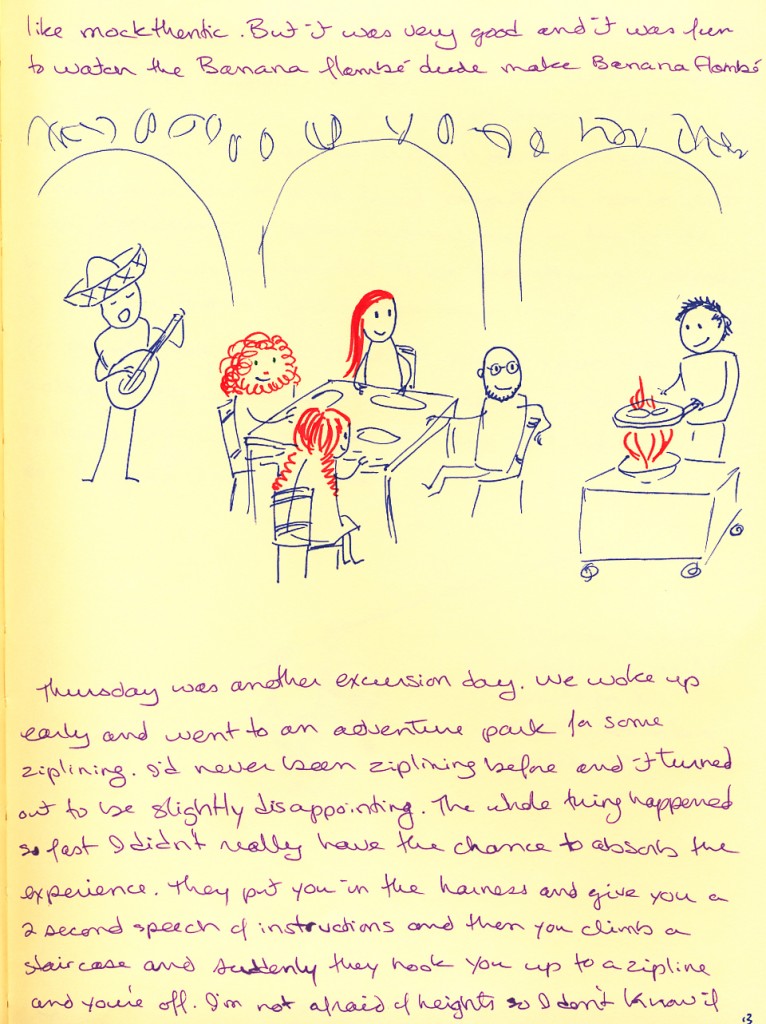 like mockthentic. But it was very good and it was fun
to watch the Banana flambé dude make Banana Flambé
Thursday was another excursion day. We woke up
early and went to an adventure park for some
ziplining. I'd never been ziplining before and it turned
out to be slightly disappointing. The whole thing happened
so fast I didn't really have the chance to absorb the
experience. They put you in the harness and give you a
2 second speech of instructions and then you climb a
staircase and suddenly they hook you up to a zipline
and you're off. I'm not afraid of heights so I don't know if
13